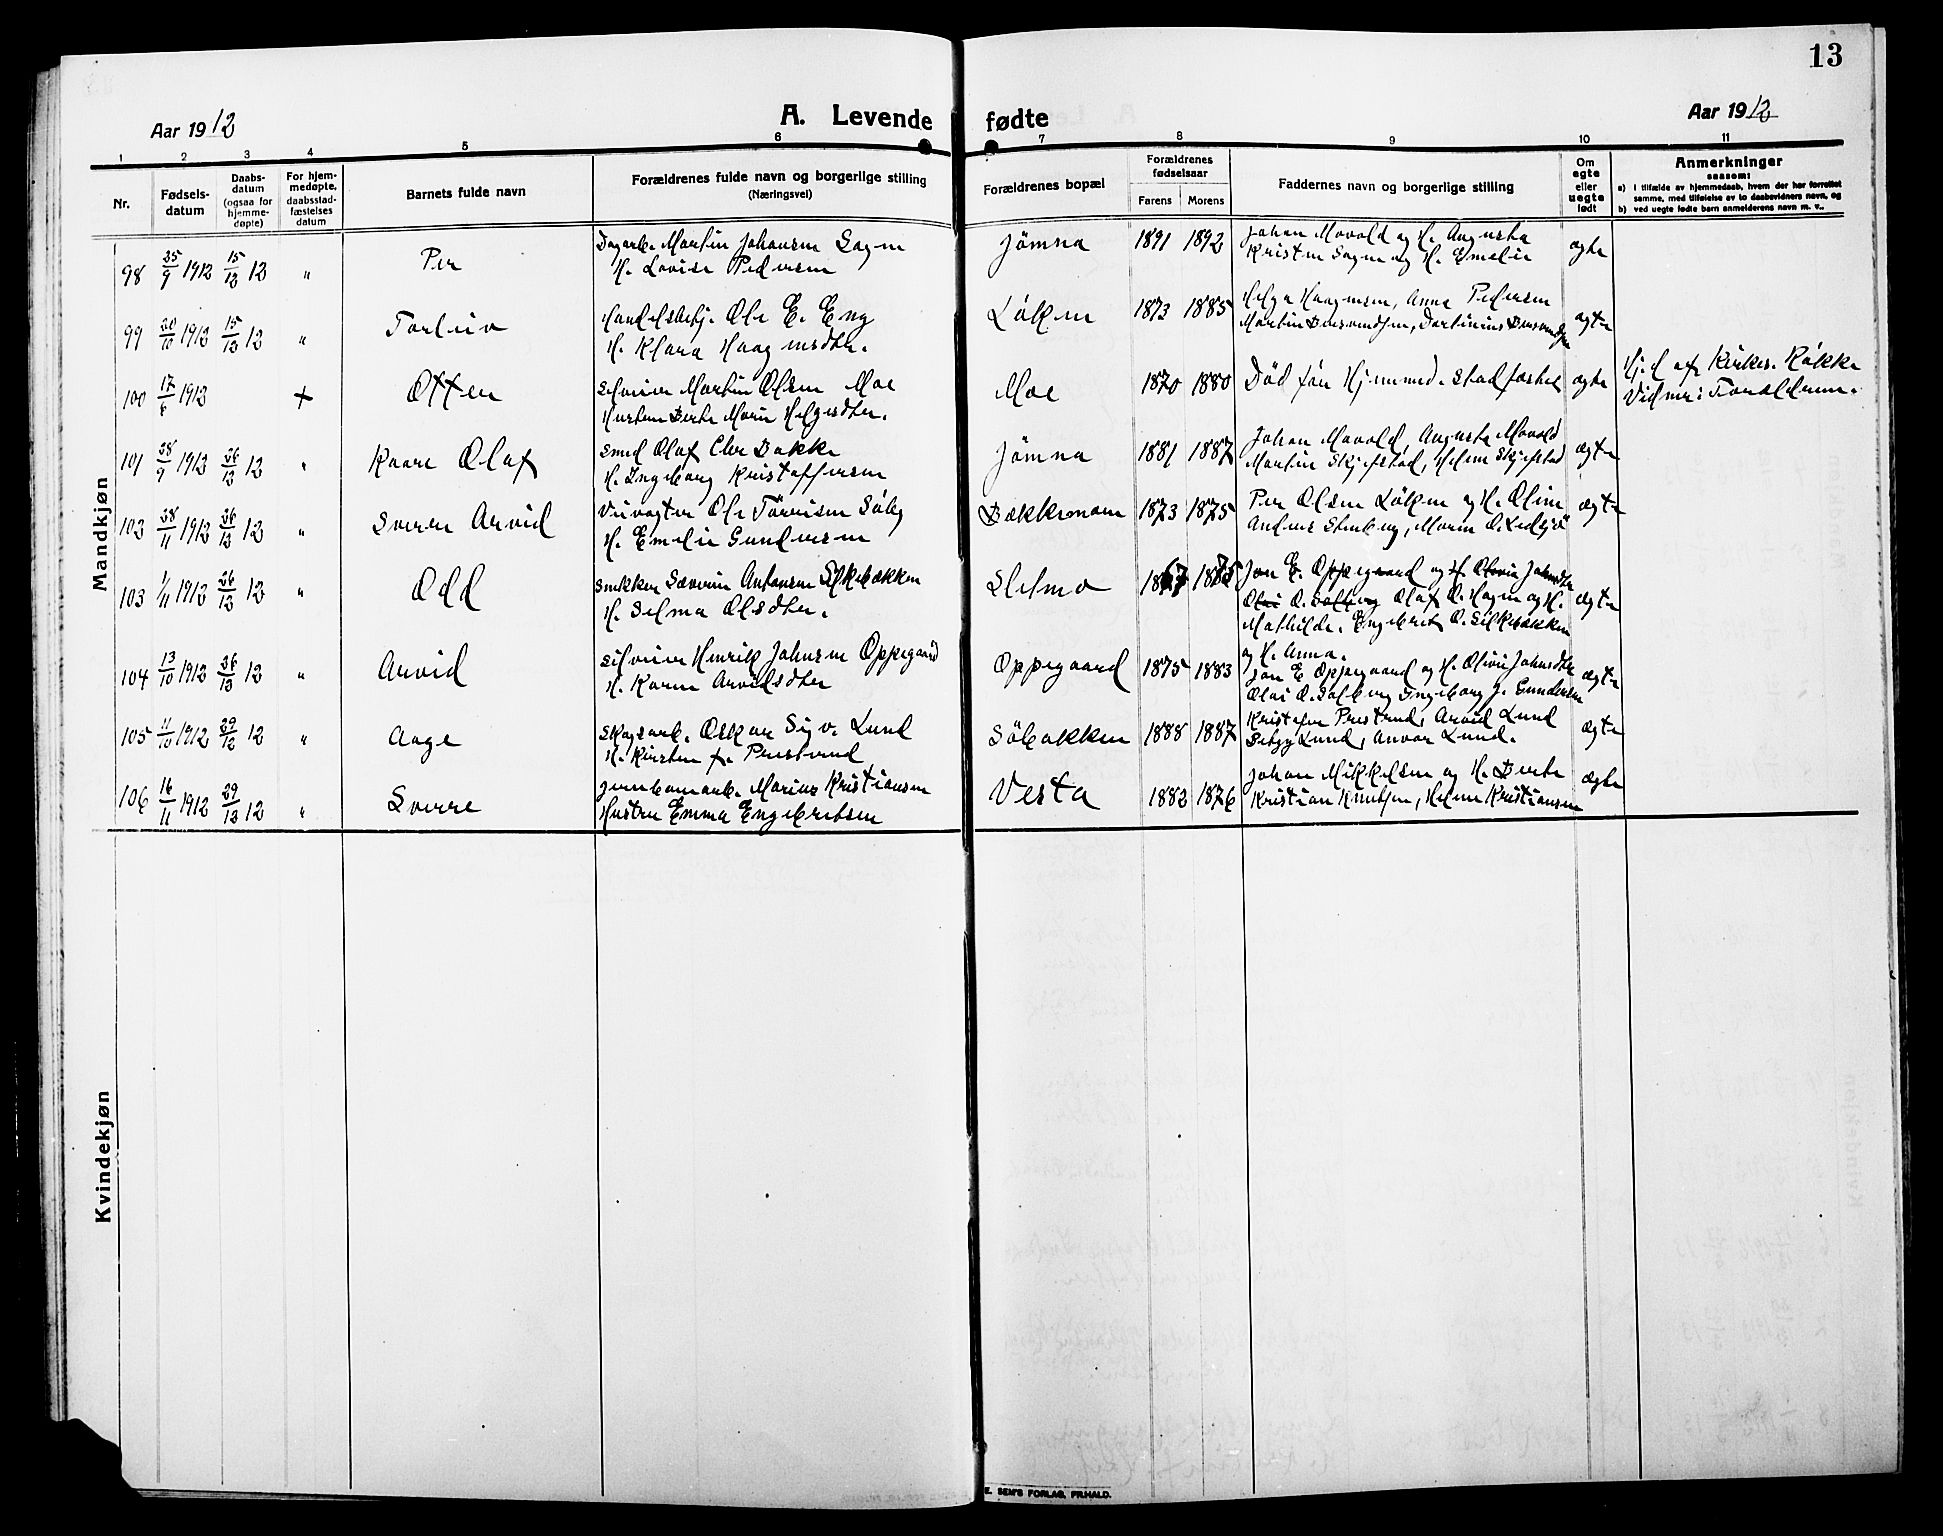 13
Aar 1912
A. Levende fødte
Aar 1912
1 2 3 4 5 6 7 8 9 10 11
Nr.
Fødsels-
datum
Daabs-
datum
(ogsaa for
hjemme-
døpte)
For hjem-
medøpte,
daabsstad-
fæstelses
datum
Barnets fulde navn
Forældrenes fulde navn og borgerlige stilling
(Næringsvei)
Forældrenes bopæl
Forældrenes
fødselsaar
Farens Morens
Faddernes navn og borgerlige stilling
Om
egte
eller
uegte
født
Anmerkninger
saasom:
a) i tilfælde av hjemmedaab, hvem der har forrettet
samme, med tilføielse av to daabsvidners navn, og
b) ved uegte fødte barn anmelderens navn m. v..
Mandkjøn
98 25/9 1912 15/12 12 " Per
Dagarb. Martin Johansen Sagen
H. Lovise Pedersen
Jömna 1891 1892
Johan Movold og H. Augusta
Kristen Sagen og H. Emelie
egte
99 20/10 1912 15/12 12 " Torleiv
Handelsbetj. Ole E. Eng
H. Klara Haagensdtr.
Löken 1873 1885
Helga Haagensen, Anna Pedersen
Martin
egte
100 17/6 1912 + Otter
Selveier Martin Olsen Moe
Hustru Berte Marie Helgesdtr.
Moe 1870 1880
Död för Hjemmed. stadfæstel
egte
Hj.d af Kirkes. Räkke
Vidner: Forældrene.
101 28/9 1912 26/12 12 " Kaare Olaf
Smed Olaf Chr Bakke
H. Ingeborg Kristoffersen
Jömna 1881 1887
Johan Movold, Augusta Movold
Martin Skjefstad, Helene Skjefstad
ægte
103 28/11 1912 26/12 12 " Sverre Arvid
Veivogter Ole Söby
H. Emelie Gundersen
Bækkemoen 1873 1875
Per Olsen Löken og H. Oline
Andreas Stenberg, Maren O.
ægte
103 1/11 1912 26/12 12 " Odd
Snekker Sæverin Antonsen Silkebækken
H. Selma Olsdtr.
Stelmo 1867 1875
Jon E. Oppegaard og H. Olivia Johnsdtr
Olai O. Solberg Olaf O. Hagen og H.
Mathilde. Engebret O. Silkebækken
og H. Anna.
ægte
104 13/10 1912 26/12 12 " Arvid
Selveier Henrik Johnsen Oppegaard
H. Karen Arvidsdtr
Oppegaard 1875 1883
Jon E Oppegaard og H. Olivie Johnsdtr
Olai O. Solberg Ingeborg J. Gundersen
ægte
105 11/10 1912 29/12 12 " Aage
Skogsarb. Oskar Sigv. Lund
H. Kirsten f. Prestrud
Söbakken 1888 1887
Kristofer Prestrud, Arvid Lund
Lund, Anvor Lund.
ægte
106 16/11 1912 29/12 12 " Sverre
Jernbanearb. Marius Kristiansen
Hustru Emma Engebretsen
Vesta 1882 1876
Johan Mikkelsen og H. Berte
Kristian Knutsen, Helene Kristiansen
ægte
Kvindekjøn
E. SEM'S FORLAG, FR.HALD.